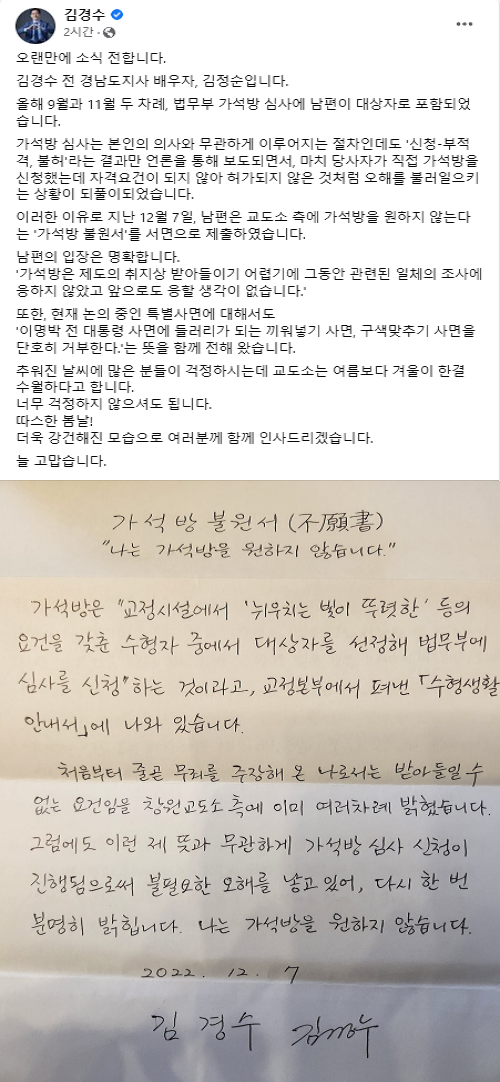 김경수
2시간 ·
오랜만에 소식 전합니다.
김경수 전 경남도지사 배우자, 김정순입니다.
올해 9월과 11월 두 차례, 법무부 가석방 심사에 남편이 대상자로 포함되었
습니다.
가석방 심사는 본인의 의사와 무관하게 이루어지는 절차인데도 '신청-부적
격, 불허'라는 결과만 언론을 통해 보도되면서, 마치 당사자가 직접 가석방을
신청했는데 자격요건이 되지 않아 허가되지 않은 것처럼 오해를 불러일으키
는 상황이 되풀이되었습니다.
이러한 이유로 지난 12월 7일, 남편은 교도소 측에 가석방을 원하지 않는다
는 '가석방 불원서'를 서면으로 제출하였습니다.
남편의 입장은 명확합니다.
'가석방은 제도의 취지상 받아들이기 어렵기에 그동안 관련된 일체의 조사에
응하지 않았고 앞으로도 응할 생각이 없습니다.'
또한, 현재 논의 중인 특별사면에 대해서도
'이명박 전 대통령 사면에 들러리가 되는 끼워넣기 사면, 구색맞추기 사면을
단호히 거부한다.'는 뜻을 함께 전해 왔습니다.
추워진 날씨에 많은 분들이 걱정하시는데 교도소는 여름보다 겨울이 한결
수월하다고 합니다.
너무 걱정하지 않으셔도 됩니다.
따스한 봄날!
더욱 강건해진 모습으로 여러분께 함께 인사드리겠습니다.
늘 고맙습니다.
가석방 불원서 (不願書)
"나는 가석방을 원하지 않습니다."
가석방은 "교정시설에서 '뉘우치는 빛이 뚜렷한' 등의
요건을 갖춘 수형자 중에서 대상자를 선정해 법무부에
심사를 신청"하는 것이라고, 교정본부에서 펴낸 「수형생활
안내서」에 나와 있습니다.
처음부터 줄곧 무죄를 주장해 온 나로서는 받아들일 수
없는 요건임을 창원교도소 측에 이미 여러차례 밝혔습니다.
그럼에도 이런 제 뜻과 무관하게 가석방 심사 신청이
진행됨으로써 불필요한 오해를 낳고 있어, 다시 한 번
분명히 밝힙니다. 나는 가석방을 원하지 않습니다.
2022. 12. 7
김 경수